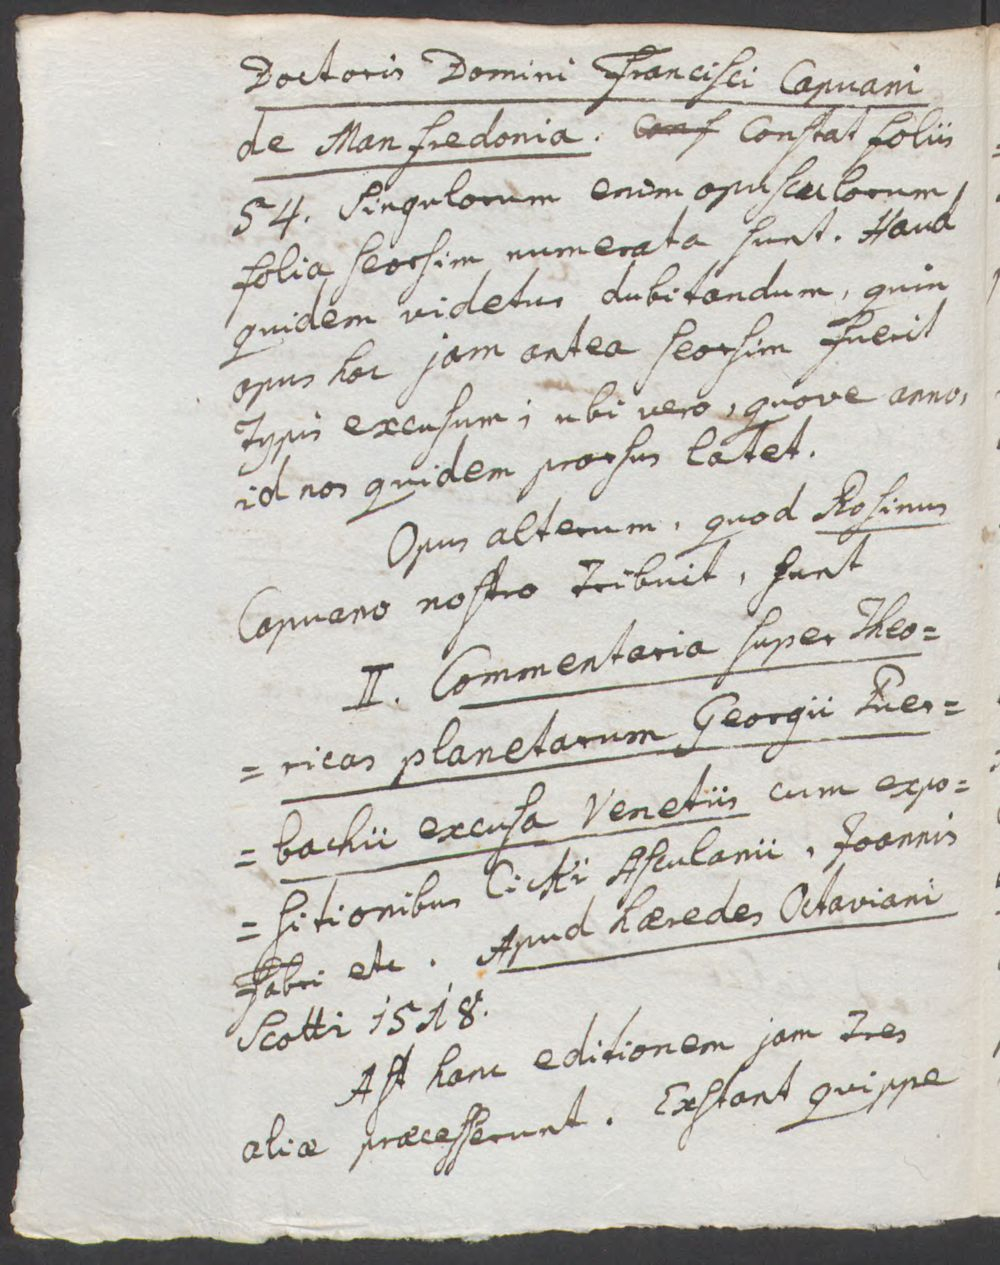 Doctoris Domini Francisci Capuani
de Manfredonia. Conf Constat foliis
54. Singulorum enim opusculorum
folia seorsim numerata sunt. Haud
quidem videtur dubitandum, quin
opus hoc jam antea seorsim fuerit
typis excusum; ubi vero, quove anno,
id nos quidem prorsus latet.
Opus alterum, quod Rosinus
Capuano nostro tribuit, sunt
II. Commentaria super Theo=
=ricas planetarum Georgii Puer=
=bachii excusa Venetiis cum expo=
=sitionibus Cickii Asculanii, Joannis
Fabri etc. Apud hæredes Octaviani
Scotti 1518.
Ast hanc editionem jam tres
aliæ præcesserunt. Exstant quippe